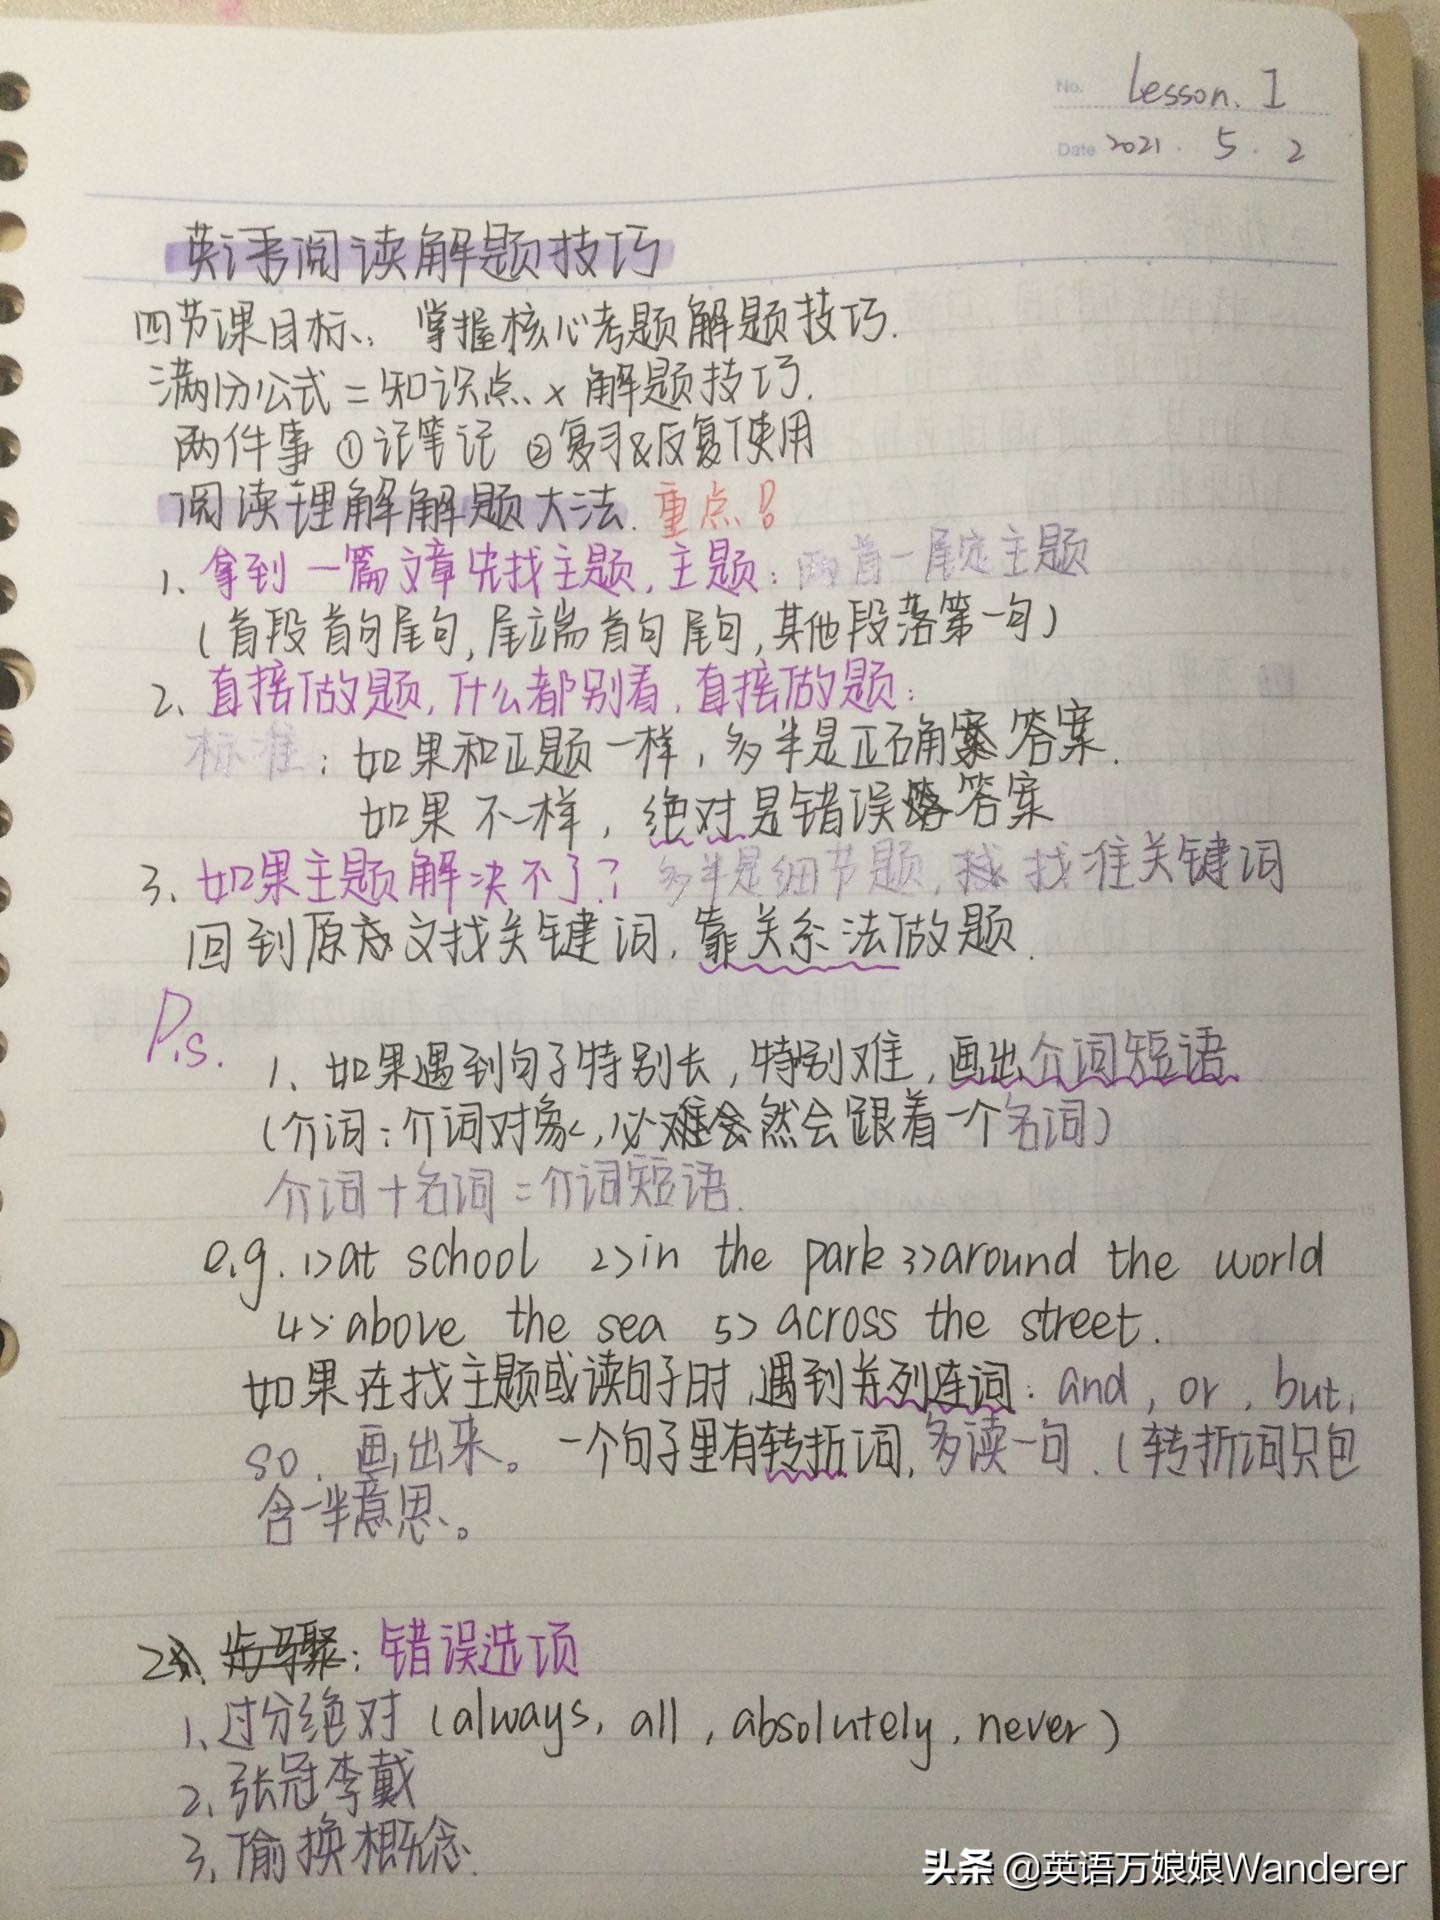 No. Lesson. I
Date 2021. 5. 2
英语阅读解题技巧
四节课目标: 掌握核心考题解题技巧.
满分公式 = 知识点 x 解题技巧.
两件事 ①记笔记 ②复习&反复使用
阅读理解解题大法. 重点!
1、拿到一篇文章先找主题, 主题: 两首一尾定主题
(首段首句尾句, 尾端首句尾句, 其他段落第一句)
2、直接做题, 什么都别看, 直接做题:
标准: 如果和正题一样, 多半是正确答案.
如果不一样, 绝对是错误答案
3、如果主题解决不了? 多半是细节题, 找准关键词
回到原文找关键词, 靠关系法做题.
P.s.
1、如果遇到句子特别长, 特别难, 画出介词短语
(介词: 介词对象, 必然会跟着一个名词)
介词+名词=介词短语.
e.g. 1>at school 2>in the park 3>around the world
4> above the sea 5> across the street.
如果在找主题或读句子时, 遇到并列连词: and, or, but,
so, 画出来。一个句子里有转折词, 多读一句. (转折词只包
含一半意思。
2、步骤: 错误选项
1、过分绝对 (always, all, absolutely, never)
2、张冠李戴
3、偷换概念.
头条 @英语万娘娘Wanderer